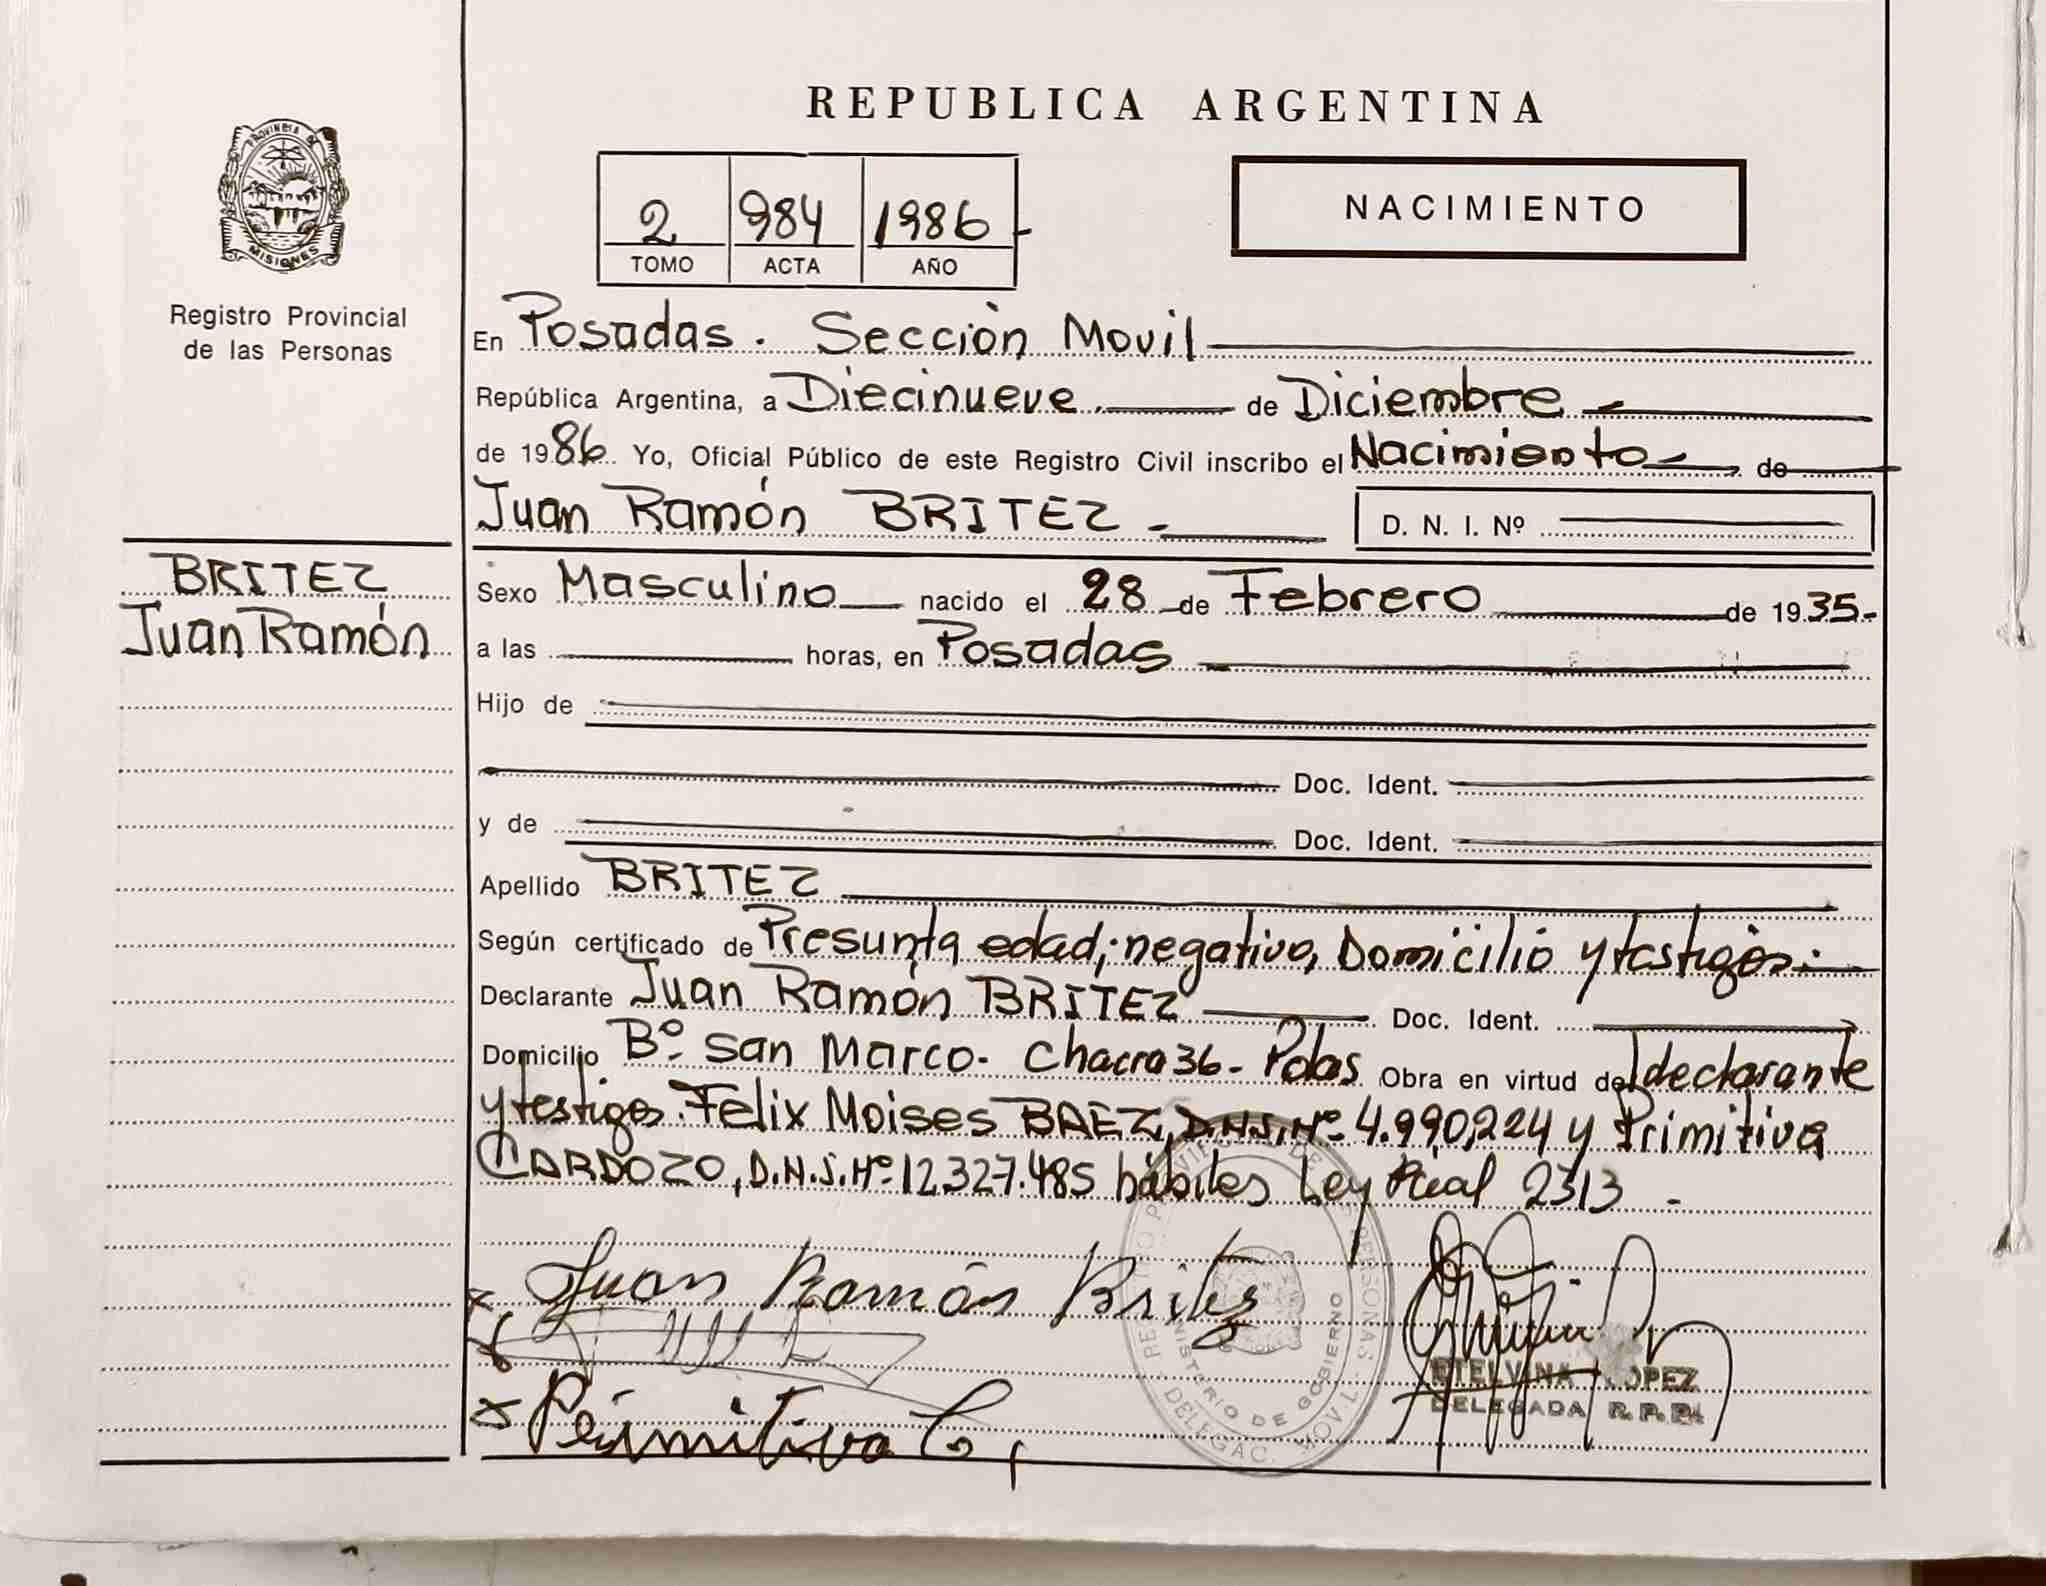 REPUBLICA ARGENTINA
PROVINCIA DE
MISIONES
Registro Provincial
de las Personas
2 984 1986
TOMO ACTA AÑO
NACIMIENTO
En Posadas. Sección Movil
República Argentina, a Diecinueve de Diciembre
de 1986 Yo, Oficial Público de este Registro Civil inscribo el Nacimiento de
Juan Ramón BRITEZ - D. N. I. Nº
BRITEZ
Juan Ramón
Sexo Masculino nacido el 28 de Febrero de 1935.-
a las horas, en Posadas
Hijo de
Doc. Ident.
y de Doc. Ident.
Apellido BRITEZ
Según certificado de Presunta edad, negativo, Domicilio y testigos.-
Declarante Juan Ramón BRITEZ Doc. Ident.
Domicilio Bº San Marco- Chacra 36- Pdas Obra en virtud del declarante
y testigos. Felix Moises BAEZ, D.N.I. Nº 4.990,224 y Primitiva
CARDOZO, D.N.I. Nº 12.327.485 hábiles Ley 2313 -
Juan Ramón Britez
Primitiva C,
REGISTRO PROVINCIAL DE LAS PERSONAS
MINISTERIO DE GOBIERNO
DELEGAC. MOVIL
ETELVINA LOPEZ
DELEGADA R.P.P.